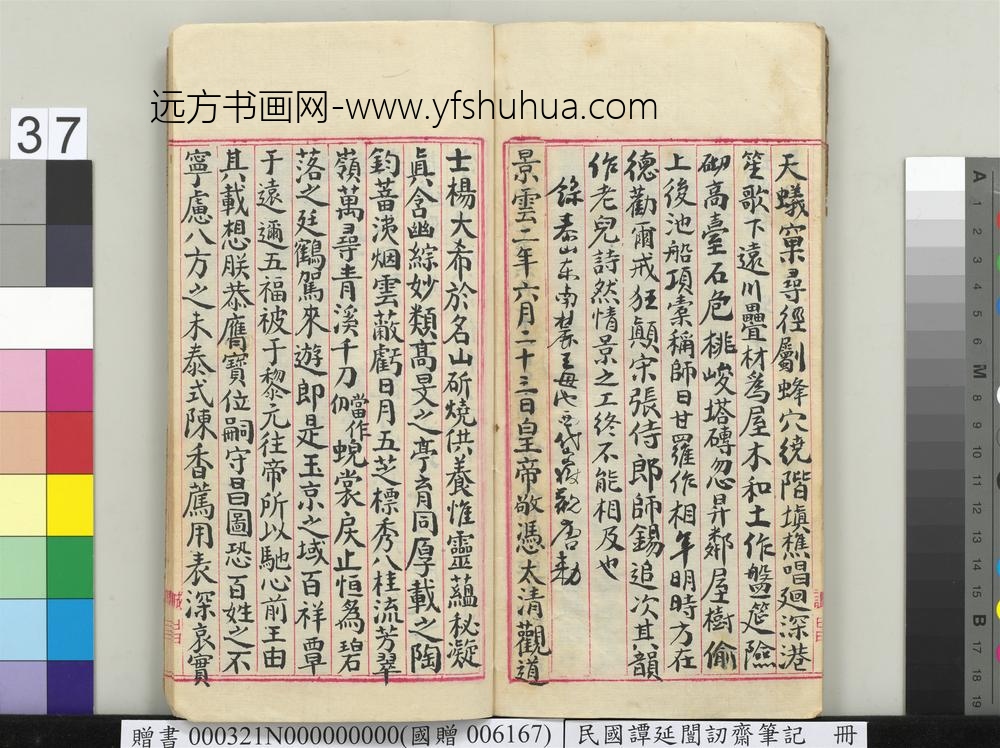 远方书画网-www.yfshuhua.com
37
天蟻窠尋徑劚蜂穴繞階塡樵唱廻深港
笙歌下遠川疊材為屋木和土作盤筵險
砌高臺石危挑峻塔磚忽昇鄰屋樹偷
上後池船項橐稱師日甘羅作相年明時方在
德勸爾戒狂顛宋張侍郎師錫追次其韻
作老兒詩然情景之工終不能相及也
錄泰山東南麓王母池岱嶽觀唐勅
景雲二年六月二十三日皇帝敬憑太清觀道
士楊大希於名山斫燒供養惟靈蘊秘凝
眞含幽綜妙類高旻之亭育同厚載之陶
鈞蓄洩烟雲蔽虧日月五芝標秀八桂流芳翠
嶺萬尋青溪千刀當作仞蜺裳戾止恒為碧
落之廷鶴駕來遊即是玉京之域百祥覃
于遠邇五福被于黎元往帝所以馳心前王由
其載想朕恭膺寶位嗣守昌圖恐百姓之不
寧慮八方之未泰式陳香薦用表深衷實
A 1 2 3 4 5 6 M 8 9 10 11 12 13 14 15 B 17 18 19
贈書 000321N000000000(國贈 006167)
民國譚延闓訒齋筆記 冊